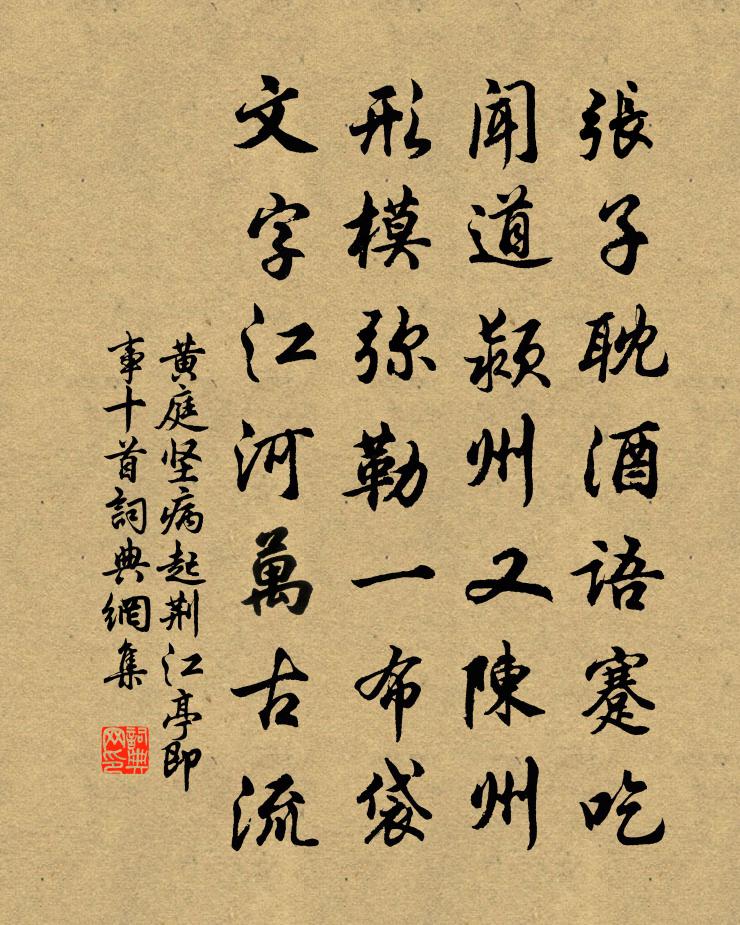 張子耽酒语蹇吃
闻道颍州又陳州
形模弥勒一布袋
文字江河萬古流
黄庭坚病起荆江亭即
事十首詞典網集
詞典
网印